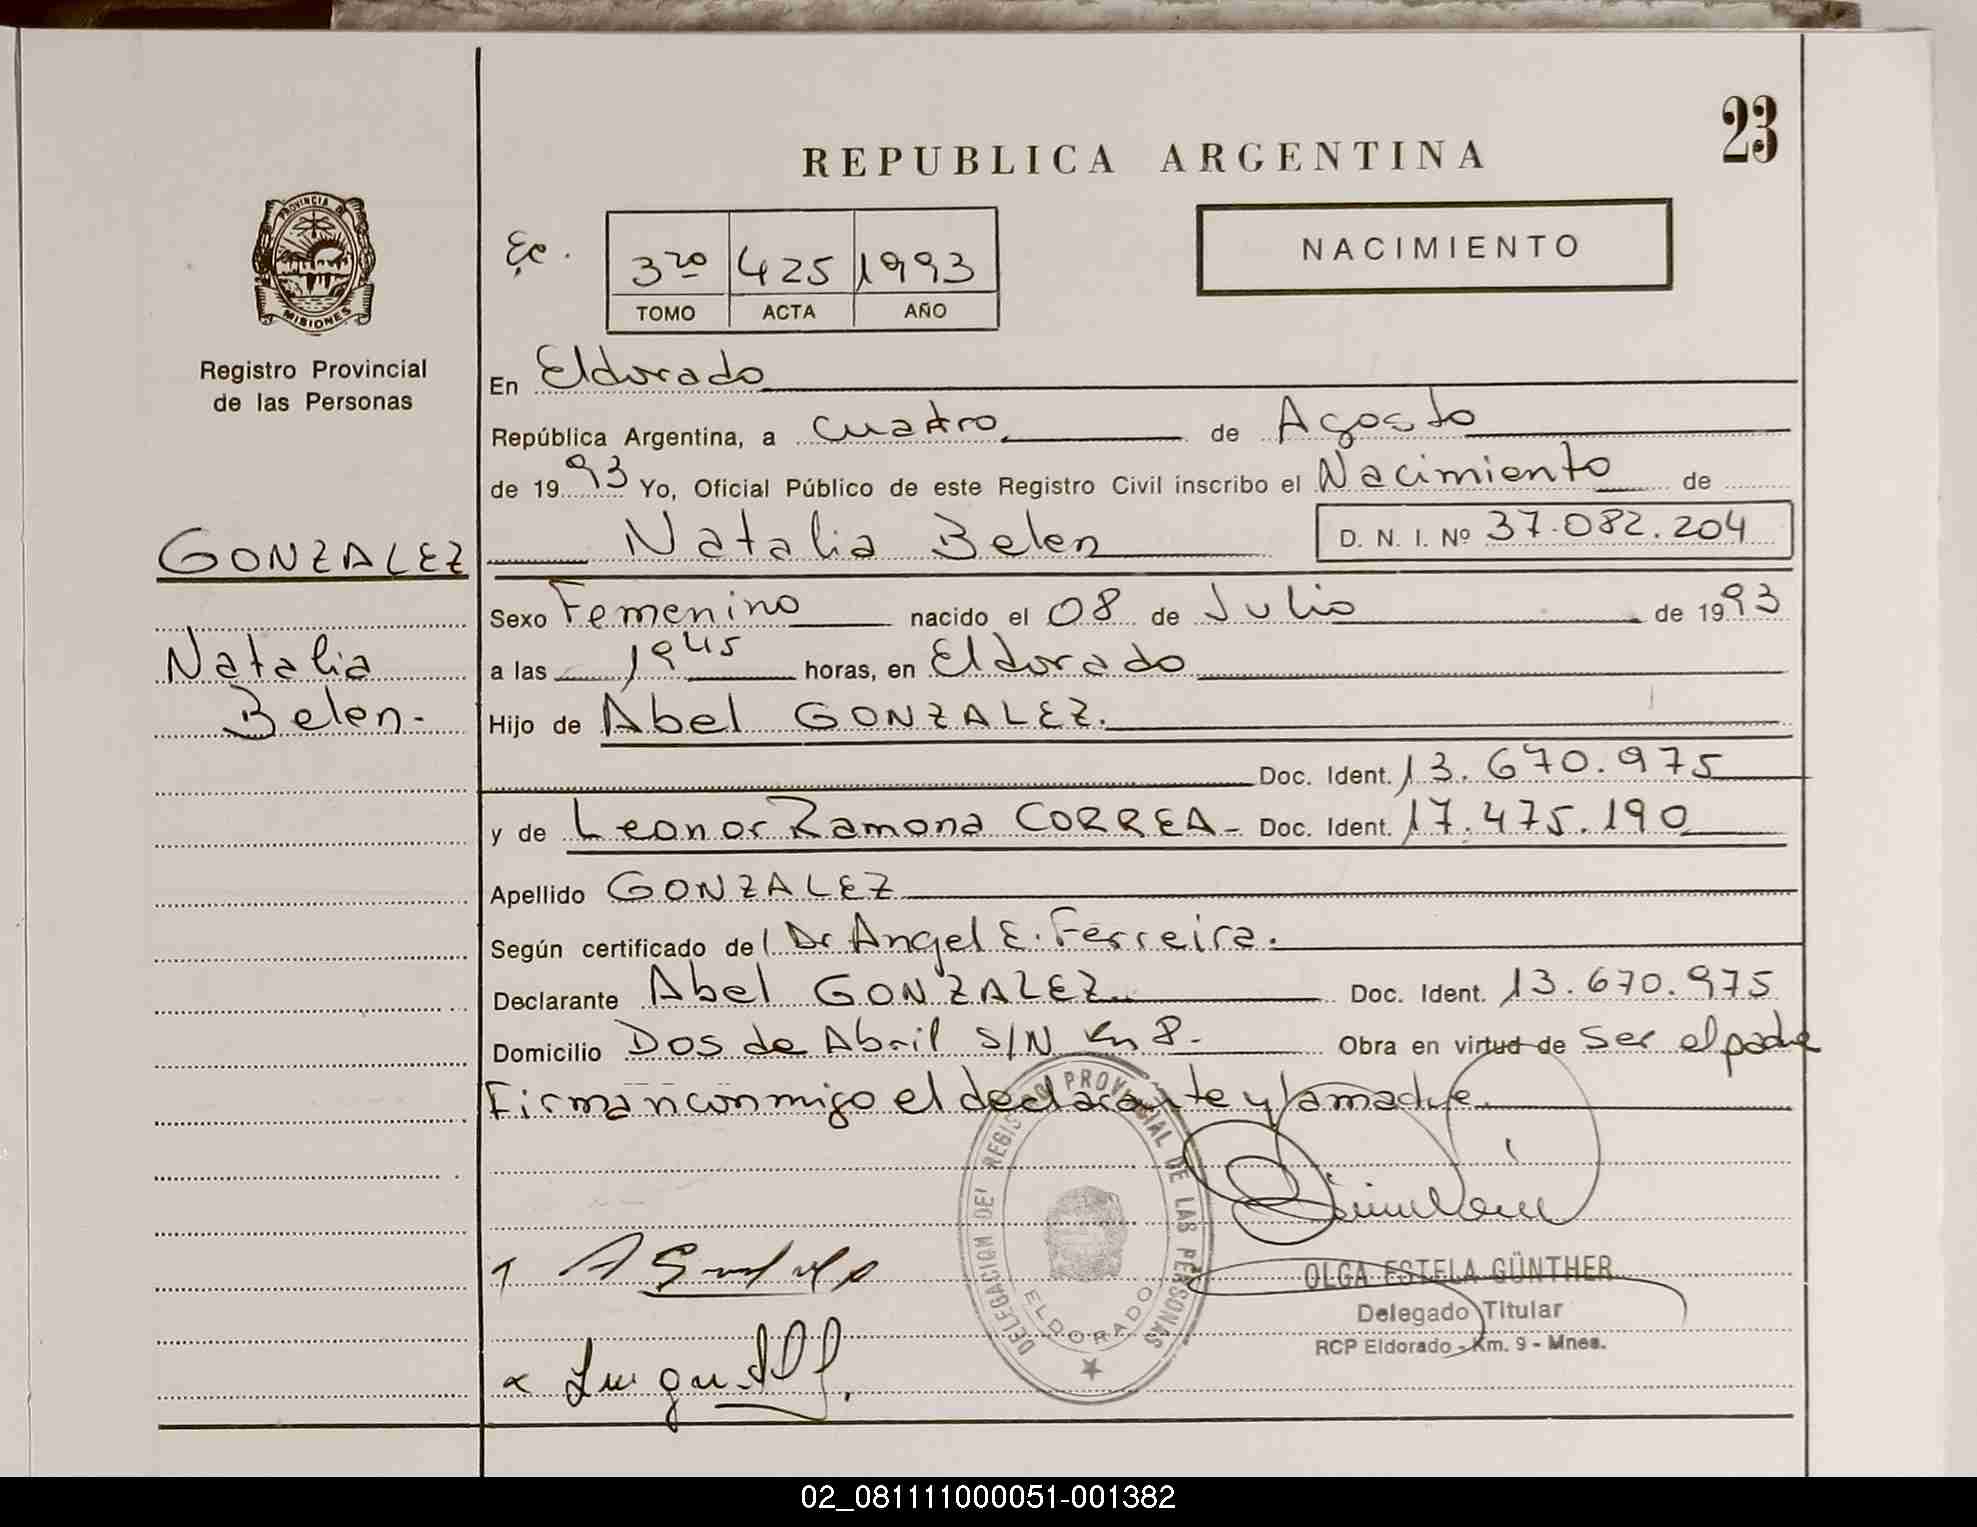 23
REPUBLICA ARGENTINA
PROVINCIA DE
MISIONES
Registro Provincial
de las Personas
3ro 425 1993
TOMO ACTA AÑO
NACIMIENTO
En Eldorado
República Argentina, a cuatro de Agosto
de 1993 Yo, Oficial Público de este Registro Civil inscribo el Nacimiento de
GONZALEZ
Natalia Belen
Natalia Belen D. N. I. Nº 37.082.204
Sexo Femenino nacido el 08 de Julio de 1993
a las 1945 horas, en Eldorado
Hijo de Abel GONZALEZ.
Doc. Ident. 13.670.975
y de Leonor Ramona CORREA- Doc. Ident. 17.475.190
Apellido GONZALEZ
Según certificado del Dr Angel E. Ferreira.
Declarante Abel GONZALEZ. Doc. Ident. 13.670.975
Domicilio Dos de Abril S/N Km 8.- Obra en virtud de ser el padre
Firman conmigo el declarante y la madre.
DELEGACION DEL REGISTRO PROVINCIAL DE LAS PERSONAS
ELDORADO
OLGA ESTELA GÜNTHER
Delegado Titular
RCP Eldorado - Km. 9 - Mnes.
02_081111000051-001382